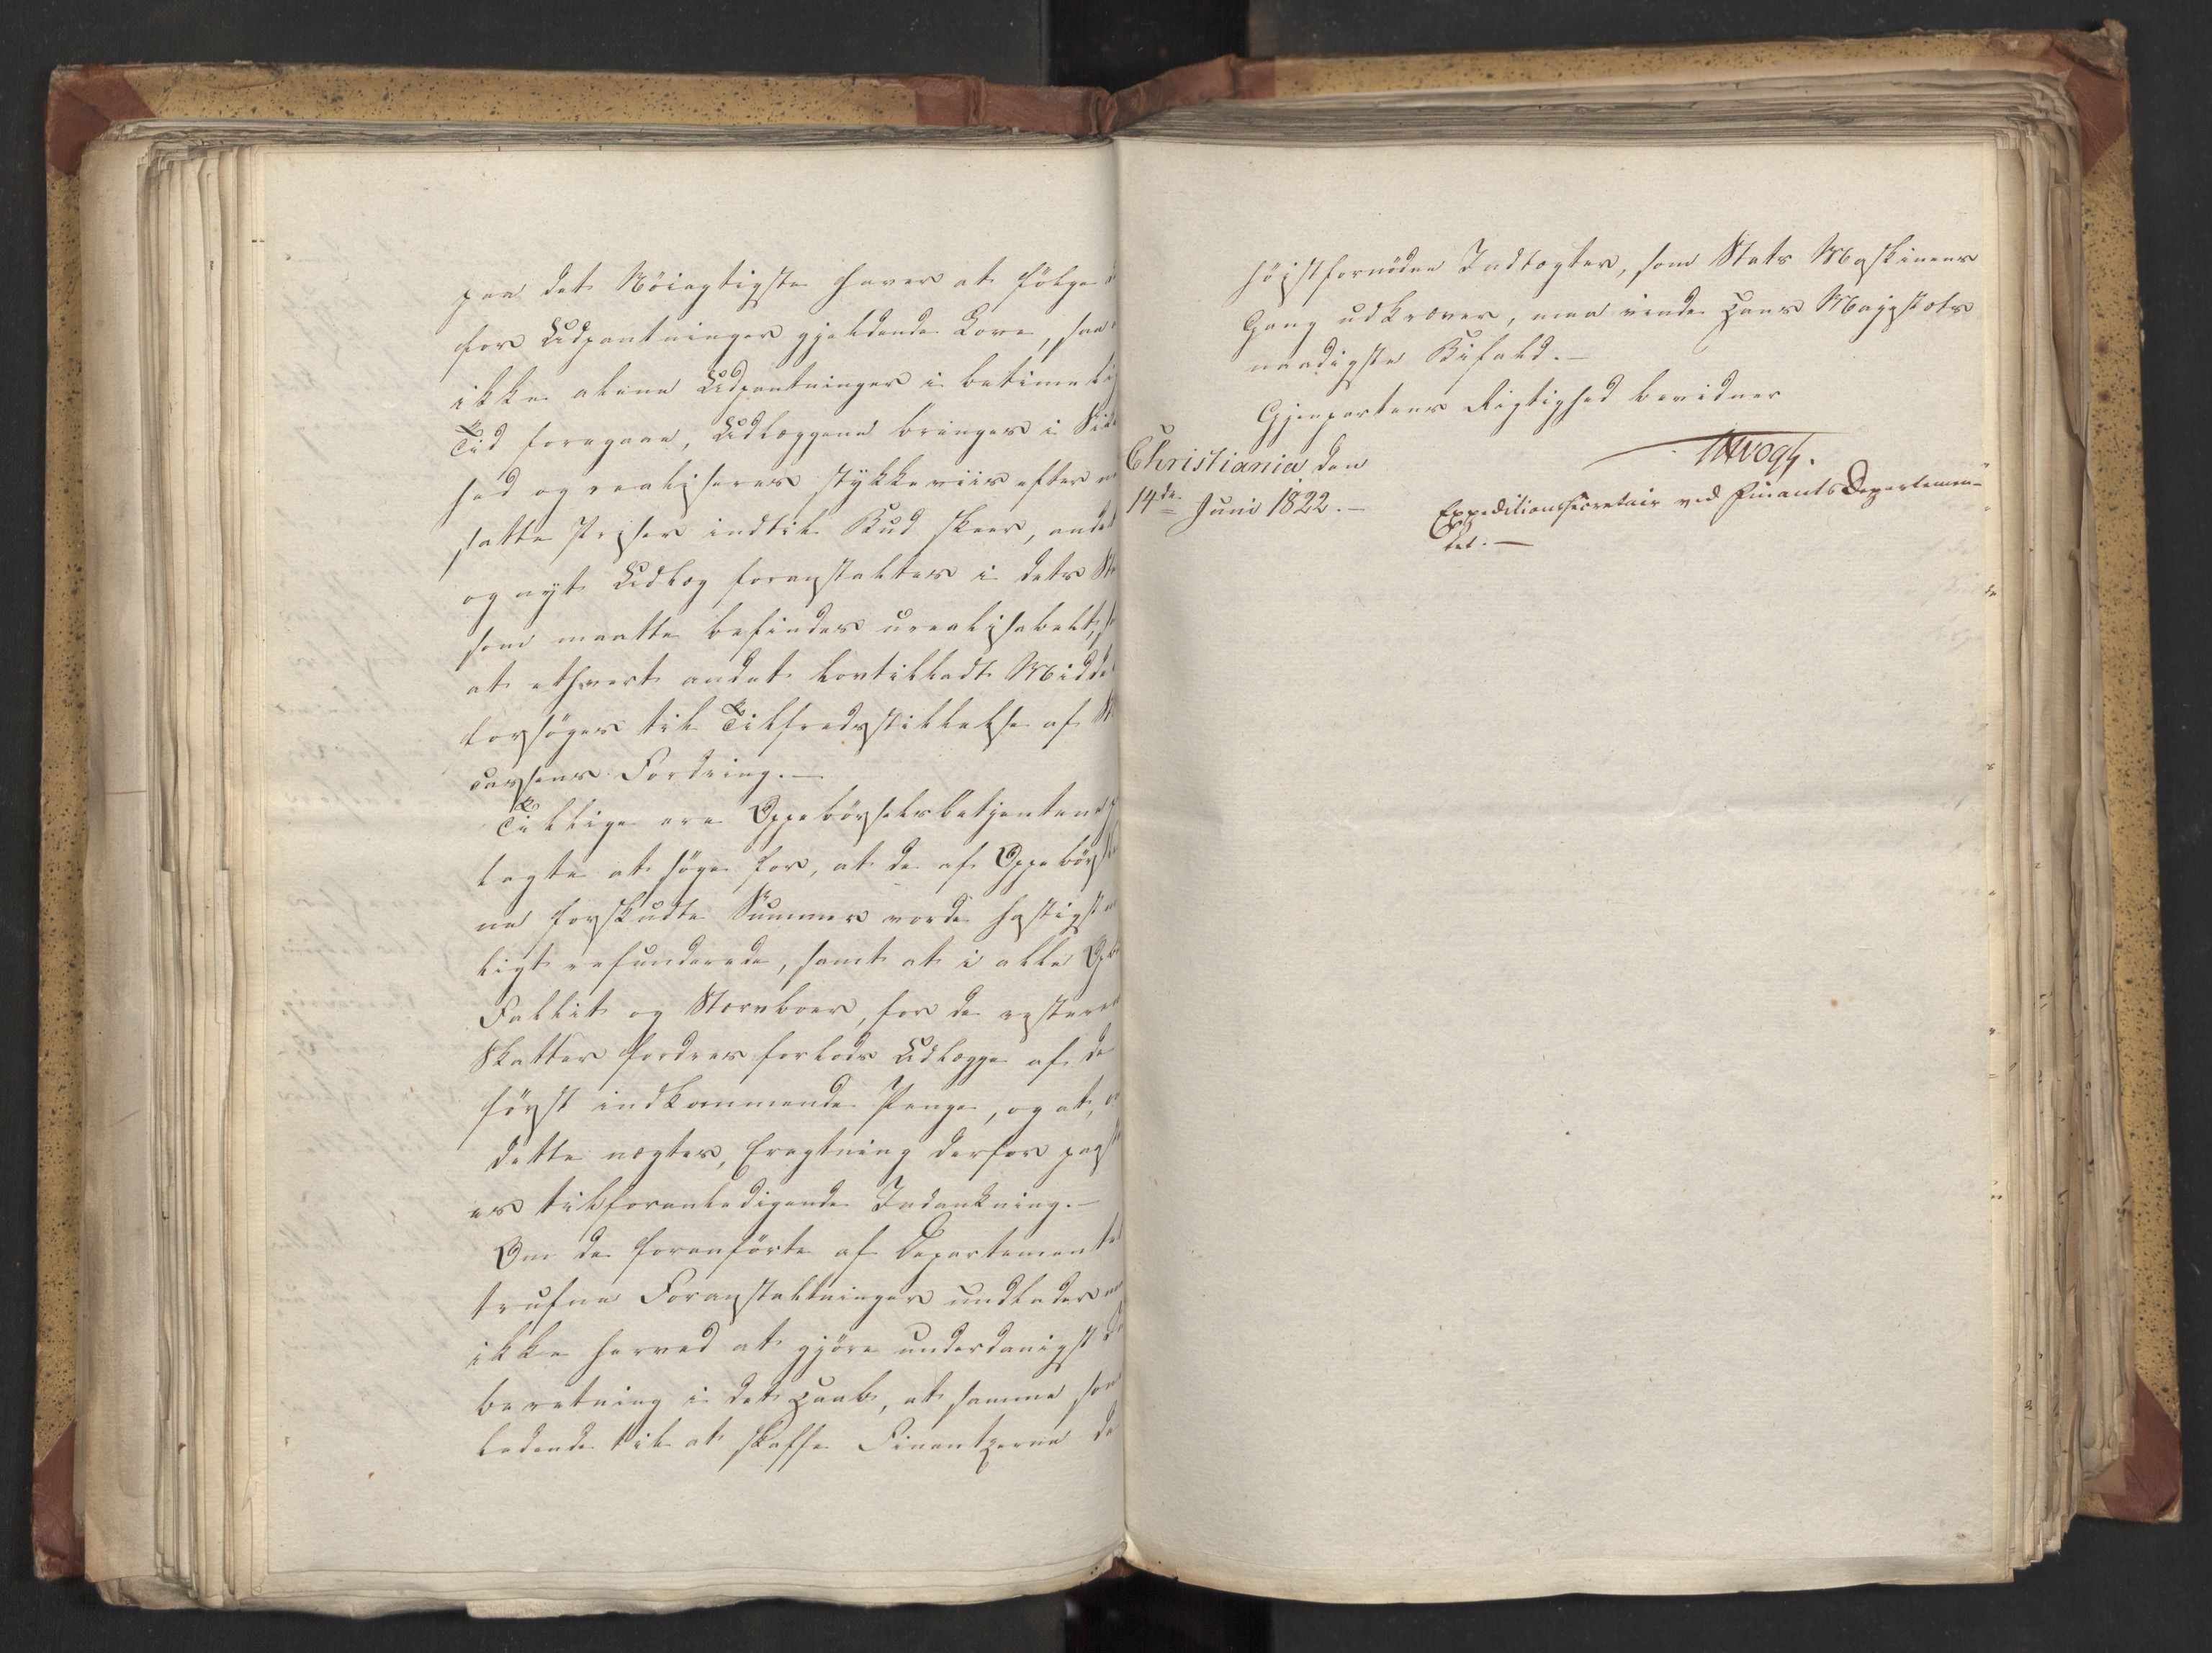 paa det Nöiagtigste haver at fölge d
for Udpantninger gjeldende Love, saa
ikke alene Udpantninger i betimelig
Tid foregaae, Udlæggene bringes i Sik
hed og realiseres stykkeviis efter
satte Priser indtil Bud skeer, andet
og nyt Udlæg foranstaltes i dets St
som maatte befindes urealisabelt,
at ethvert andet lovtilladt Middel
forsöges til Tilfredsstillelse af St
cassens Fordring.—
Tillige ere Oppebörselsbetjentene p
lagte at söge for, at de af Oppebörsle
ne forskudte Summer vorde hastigst m
ligt refunderede, samt at i alle Op
Fallit og Stervboer, for de resteren
Skatter fordres forlods Udlægge af de
först indkommende Penge, og at, o
dette nægtes, Eragtning derfor paast
es til foranledigende Indankning.—
Om de foranförte af Departementet
trufne Foranstaltninger undlader m
ikke herved at gjöre underdanigst
beretning i det Haab, at samme som
ledende til at skaffe Finantzerne de
höjstfornödne Indtægter, som Stats Maskinens
Gang udkræver, maa vinde Hans Majestæts
naadigste Bifald.—
Gjenpartens Rigtighed bevidner
Christiania den
14de Juni 1822.—
Vogt.
Expeditionssecretair ved Finants Departemen-
tet.—